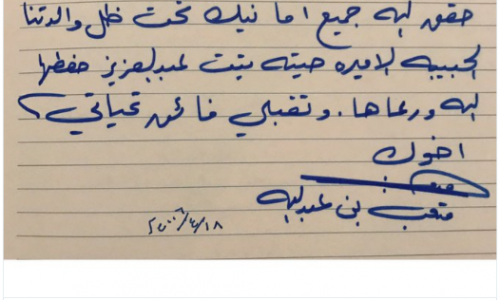 حقق الله جميع امانيك تحت ظل والدتنا
الحبيبه الاميره حصه بنت عبدالعزيز حفظها
الله ورعاها. وتقبلي فائق تحياتي؟
اخوك
متعب بن عبدالله